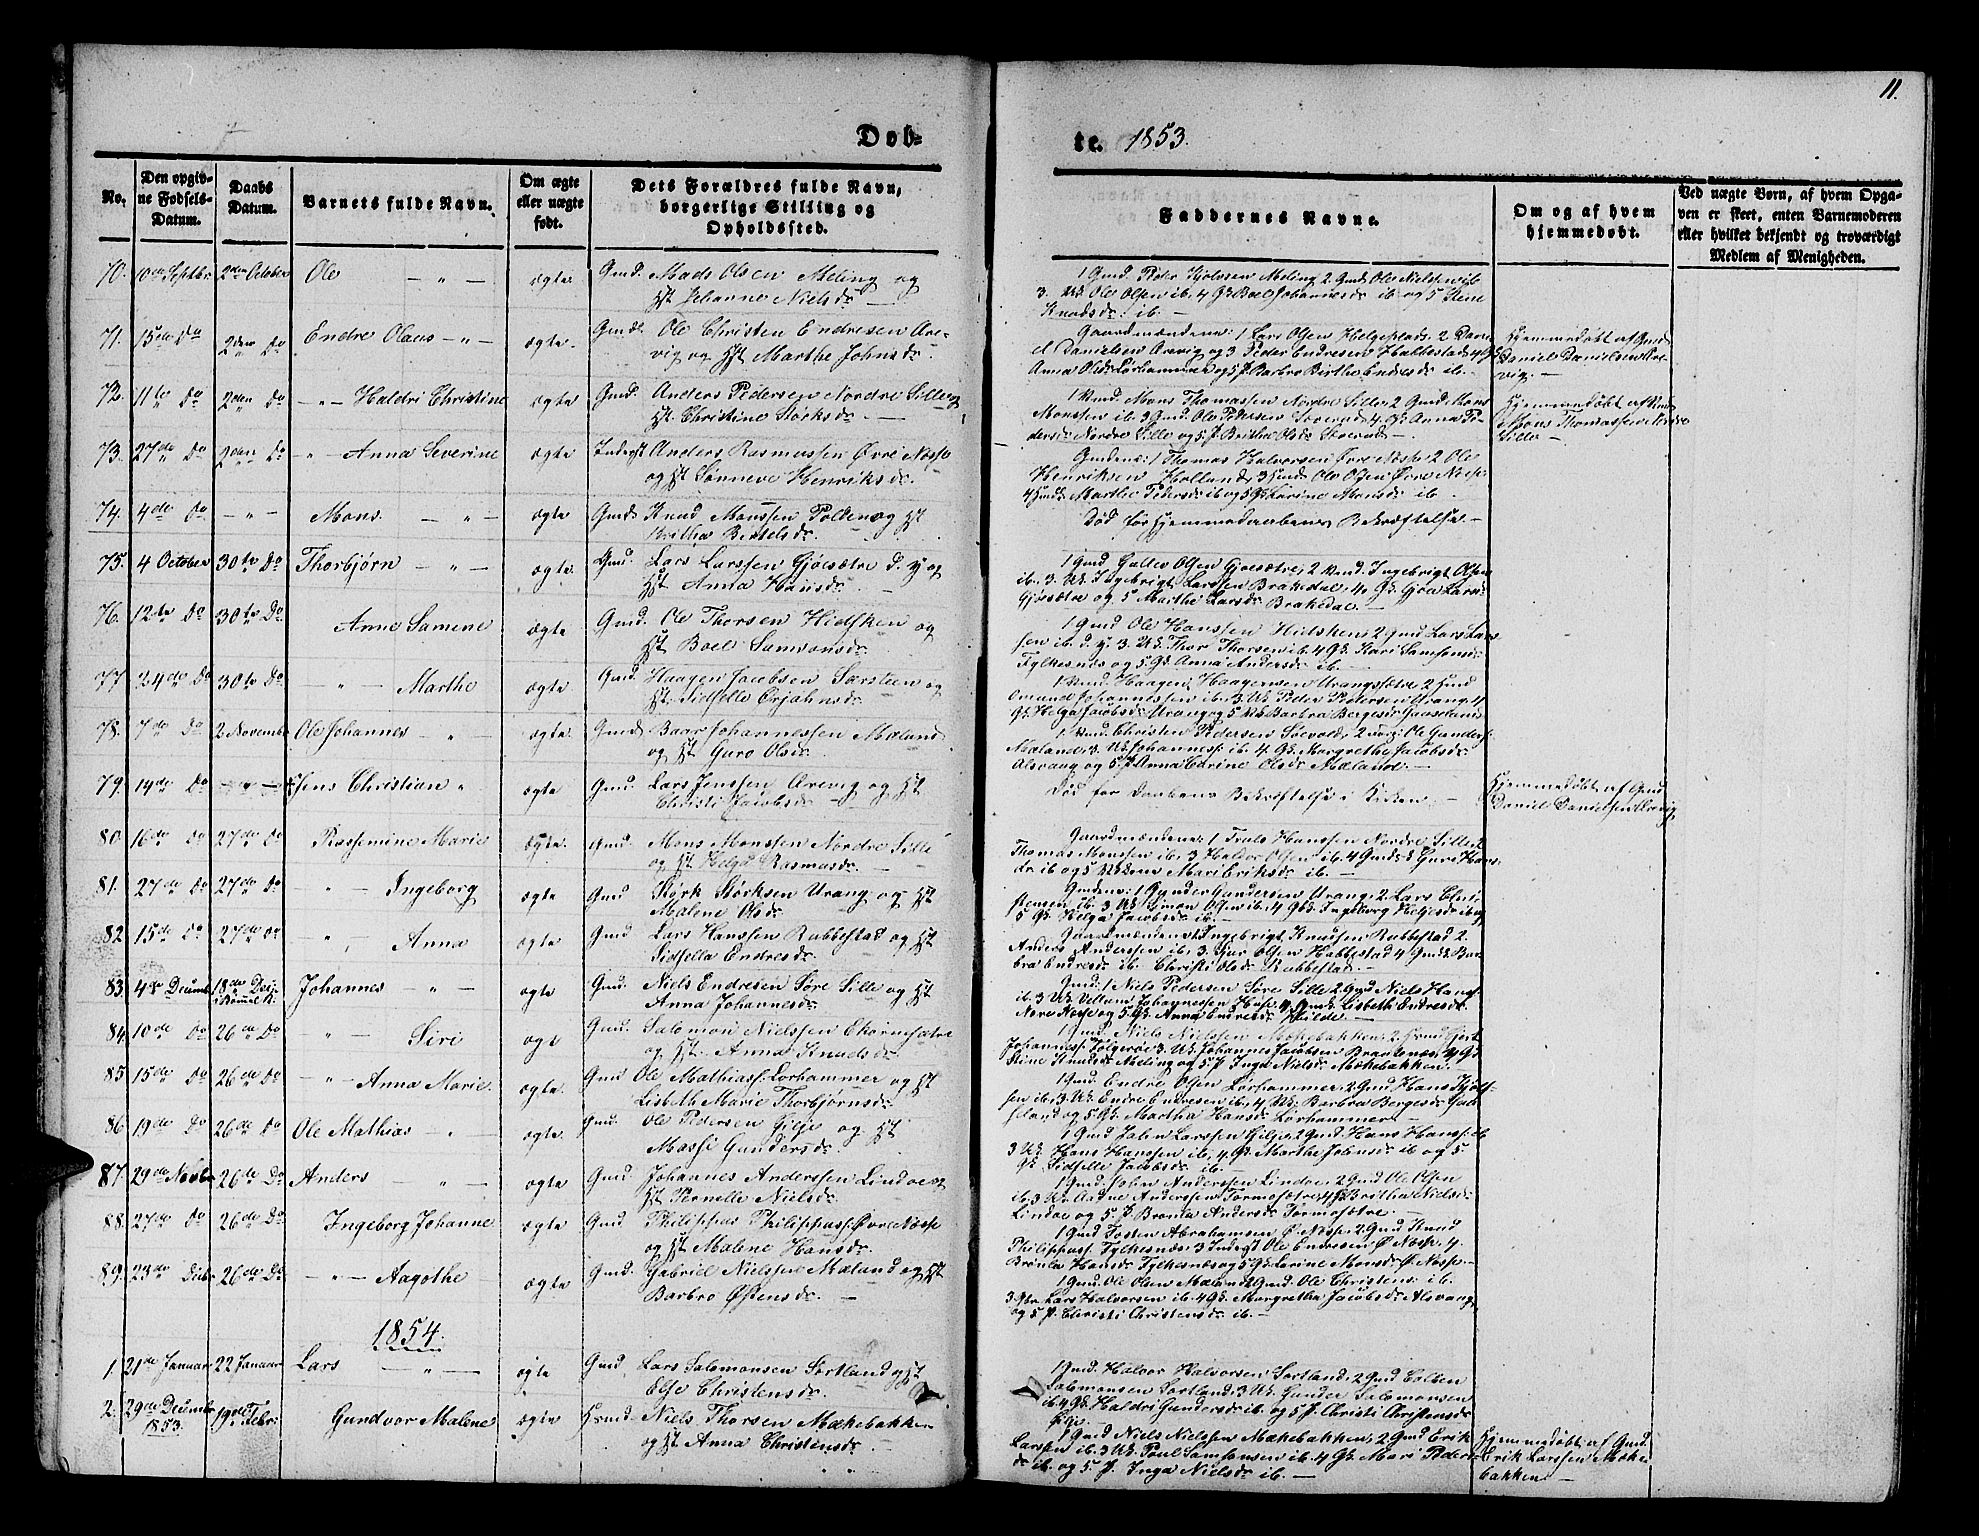 11.
Døb-
te. 1853.
No.
Den opgiv-
ne Fødsels-
Datum.
Daabs
Datum.
Barnets fulde Navn.
Om ægte
eller uægte
født.
Dets Forældres fulde Navn,
borgerlige Stilling og
Opholdssted.
Faddernes Navne.
Om og af hvem
hjemmedøbt.
Ved uægte Børn, af hvem Opga-
ven er skeet, enten Barnemoderen
eller hvilket bekjendt og troværdigt
Medlem af Menigheden.
70. 10de Septbr 2den October Ole — " — ægte Gmd. Mads Olsen Meling og
Hst Johanne Nielsdr —
1 Gmd. Peder 2 Gmd. Ole Nielsen ib
3. Uk Ole Olsen ib. 4 Gk Boel Johannesdr ib og 5
Knudsdr ib. —
71. 15de Do 2den Do Endre Olaus — " — ægte. Gmd. Ole Christen Endresen Are-
vig og Hst Marthe Johnsdr.
Gaardmændene: 1 Lars Olsen 2 Dani-
el Danielsen Arevig og 3 Peder Endresen
Anna Olsdr Lørhammer og 5 P. Barbro Birthe Endresdr ib. —
Hjemmedøbt af Gmd
Daniel Danielsen Are-
vig. —
72. 11te Do 2den Do — " — Haldri Christine ægte Gmd. Anders Pedersen Nordre Sille og
Hst. Christine Størksdr —
1 Gmd. Mons Thomassen Nordre Sille, 2 Gmd Mons
Monssen ib 3 Gmd. Ole Pedersen 4 Gk Anna Pe-
dersdr Nordre Sille og 5 P. Britha Olsdr
Hjemmedøbt af
Mons Thomassen Nordre
Sille —
73. 27de Do 2den Do — " — Anna Severine ægte Inderst Anders Rasmussen Øvre Næsse
og Hst Sønneve Henriksdr.
Gmdene: 1 Thomas Halvorsen Øvre Næsse 2 Ole
Henriksen Holland, 3 Ole Olsen Øvre Næsse
4 Marthe Pedersdr ib og 5 Gk Karine Monsdr ib
74. 4de Do — " — Mons. — " — ægte Gmd. Knud Monssen Polden og Hst
Britha Bertelsdr.
Død før Hjemmedaabens Bekræftelse —
75. 4 October 30te Do Thorbjørn — " — ægte. Gmd. Lars Larssen Gjøesætre d. y og
Hst Anna Hansdr. —
1 Gmd Galle Olsen Gjøesætre, 2 Ingebrigt Olsen
ib. 3. Uk. Ingebrigt Larssen Brakedal, 4. Gk. Lars-
Gjøesætre og 5 Marthe Larsdr Brakedal. —
76. 12te Do 30te Do Anne Samine ægte Gmd. Ole Thorsen Hidsken og
Hst Boel Samsonsdr.
1 Gmd Ole Hanssen Hidsken, 2 Gmd Lars Lars-
sen ib. d. y. 3. Uk. Thor Thorsen ib. 4 Gk. Kari Samsonsdr
Fylkesnæs og 5. Gk. Anna Andersdr ib. —
77 24de Do 30te Do — " — Marthe ægte Gmd. Haagen Jacobsen Sørsteen og
Hst. Sidselle Erjahnsdr.
1 Haagen Haagensen Urangssætre 2
Johannessen ib, 3. Uk. Peder Pedersen Urang. 4
Gk. Helga Jacobsdr Urang og 5 Barbra
78. 7de Do 2 Novembr Ole Johannes — " — ægte. Gmd. Baar Johannessen Mæland
og Hst Guro Olsdr.
1 Christen Pedersen 2 Ole Gunders.
Mæland, 3. Uk Johanness. ib. 4. Gk. Margrethe Jacobsdr
Alsvaag og 5. P. Anna Carine Olsdr Mæland. —
79. 14de Do — " — Jens Christian " ægte Gmd. Lars Jenssen Arevig og Hst
Christi Jacobsdr —
Død før Daabens Bekræftelse i Kirken —
Hjemmedøbt af Gmd
Daniel Danielsen Arevig
80. 16de Do 27de Do Rassemine Marie ægte. Gmd. Mons Monssen Nordre Sille
og Hst Helga Rasmusdr.
Gaardmændene: 1 Truls Hanssen Nordre Sille, 2
Thomas Monssen ib, 3 Haldor Olsen ib. 4 Guri Hans-
dr ib og 5 Mari Eriksdr ib. —
81. 27de Do 27de Do — " — Ingeborg ægte Gmd Størk Størksen Urang og Hst
Malene Olsdr.
Gmdene: 1 Gunder Gundersen Urang, 2 Lars
ib. 3 Uk Simon Olsen ib, 4 Gk. Ingeborg ib og
5 Gk. Helga Jacobsdr ib. —
82 15de Do 27de Do — " — Anna ægte Gmd Lars Hanssen Rabbestad og Hst
Sidsella Endresdr.
Gaardmændene: 1 Ingebrigt Knudsen Rabbestad 2.
Anders Anderssen ib, 3. Sjur Olsen Habbestad 4 Bar-
bra Endresdr ib. Christi Olsdr Rabbestad. —
83. 4de Decembr 18de Do i Bømel K. Johannes — " — ægte Gmd. Niels Endresen Søre Sille og Hst
Anna Johannesdr.
Gmd: 1 Niels Pedersen Søre Sille, 2 Gmd Niels Hans-
ib. 3 Uk Johannessen 4 Lisbeth Endresdr
Næsse og 5 Gk. Anna Endresdr —
84. 10de Do 26de Do — " — Siri ægt Gmd. Salomon Nielssen Skørnsætre
og Hst. Anna Knudsdr —
1 Gmd. Niels Nielssen Mækebakken, 2
Johanness. Folgerøe 3. Uk. Johannes Jacobsen 4 Gk
Stine Knudsdr Meling og 5 P. Inga Nielsdr Mækebakken.
85 15de Do 26de Do — " — Anna Marie ægte. Gmd Ole Mathiass. Lørhammer og Hst
Lisbeth Marie Thorbjørnsdr.
1 Gmd. Endre Olsen Lørhammer, 2 Gmd Hans
ib, 3 Uk. Endre Endresen ib, 4 Barbra Bergesdr
og 5 Gk. Martha Hansdr Lørhammer —
86 19de Do 26de Do Ole Mathias — " — ægte. Gmd. Ole Pedersen Gilje og Hst
Massi Gundersdr.
1 Gmd John Larssen Gilje, 2 Gmd. Hans Hanss. ib
3 Uk Hans Hanssen ib, 4. Gk. Marthe Johnsdr ib og 5.
Gk. Sidselle Jacobsdr ib. —
87. 29de Novbr 26de Do Anders — " — ægte Gmd. Johannes Anderssen Lindøe og
Hst Pernelle Nielsdr. —
1 Gmd. John Anderssen Lindøe, 2 Gmd Ole Olsen
ib. 3 Uk. Aadne Anderssen Tormosætre, 4 Britha Nielsdr
Lindøe og 5. P. Andersdr Tormosætre. —
88. 27de Do 26de Do Ingeborg Johanne ægte Gmd. Philippus Philippuss. Øvre Næsse
og Hst Malene Hansdr.
1 Gmd Tosten Abrahamsen Ø. Næsse, 2 Gmd Knud
Philippuss. Fylkesnæs, 3 Inderst Ole Endresen Ø Næsse, 4.
Brønla Hansdr Fylkesnæs og 5 Gk Karine Monsdr Ø. Næsse. —
89. 23de Debr 26de Do — " — Aagothe ægte Gmd. Gabriel Nielssen Mæland og Hst
Barbro Østensdr. —
1 Gmd. Ole Olsen Mæland 2 Gmd. Ole Christens. ib.
3 Lars Halvorsen ib. 4 Gk. Margretha Jacobsdr Alsvaag
og 5 P. Christi Christensdr ib. —
1854.
1. 21de Januar 22 Januar Lars — " — ægte Gmd. Lars Salomonsen Sortland og Hst
Else Christensdr.
1 Gmd. Halvor Halvorsen Sortland, 2 Gmd
Salomonsen Sortland, 3 Uk. Gunder Salomonsen
ib. 4 Gk Haldri Gundersdr ib. og 5 P. Christi Christensdr
Gilje. —
2. 29de Decembr 1853. 19de Febr. Gundvor Malene ægte Hsmd. Niels Thorsen Mækebakken
og Hst Anna Christensdr. —
1 Gmd Niels Nielssen Mækebakken, 2 Gmd Erik
Larssen ib. 3 Uk. Poul Samsonsen ib. 4 Gk. Mari Peders-
dr ib. og 5. P. Inga Nielsdr ib. —
Hjemmedøbt af Gmd.
Erik Larssen Mæke-
bakken —